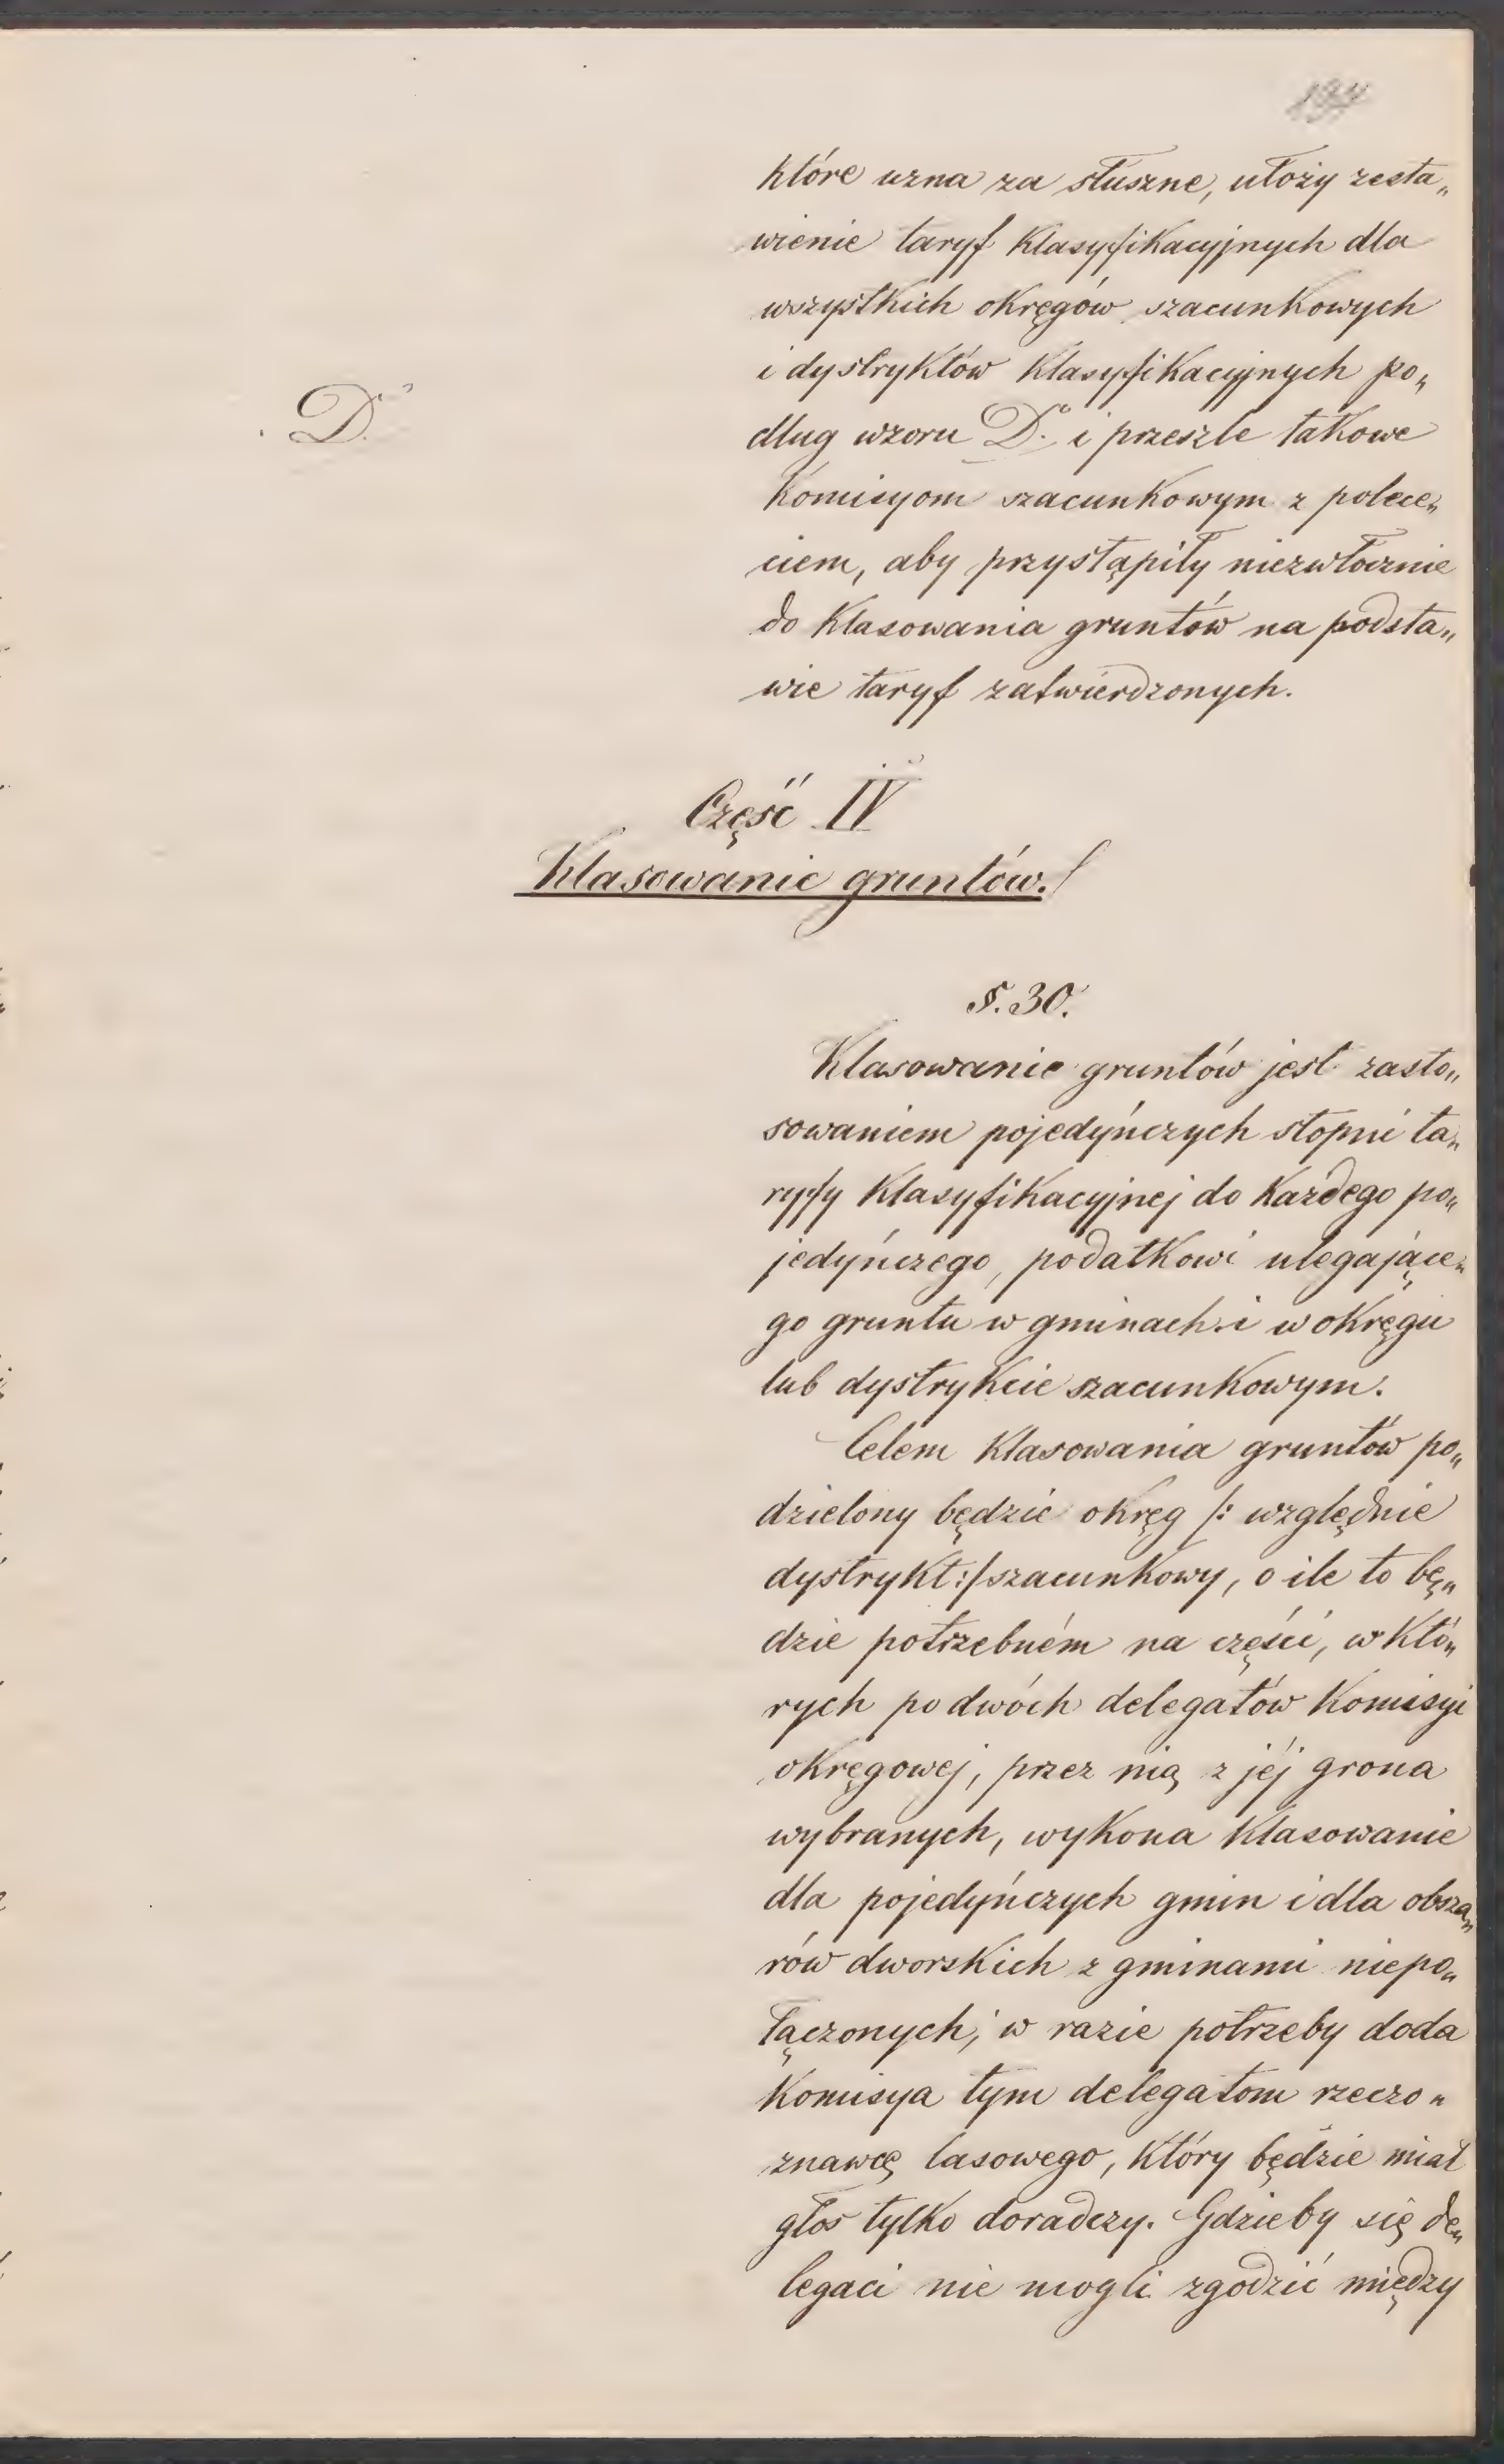 które uzna za słuszne, ułoży zesta„
wienie taryf klasyfikacyjnych dla
wszystkich okręgów szacunkowych
i dystryktów klasyfikacyjnych po„
D.
dług wzoru D. i przeszle takowe
komisyom szacunkowym z polece„
ciem, aby przystąpiły niezwłocznie
do klasowania gruntów na podsta„
wie taryf zatwierdzonych.
Część IV
Klasowanie gruntów.
§. 30.
Klasowanie gruntów jest zasto„
sowaniem pojedyńczych stopni ta„
ryfy klasyfikacyjnej do każdego po„
jedyńczego, podatkowi ulegające„
go gruntu w gminach i w okręgu
lub dystrykcie szacunkowym.
Celem klasowania gruntów po„
dzielony będzie okręg /: względnie
dystrykt :/ szacunkowy, o ile to bę„
dzie potrzebném na części, w któ„
rych po dwóch delegatów Komisyi
okręgowej, przez nią z jéj grona
wybranych, wykona klasowanie
dla pojedyńczych gmin i dla obsza„
rów dworskich z gminami niepo„
łączonych; w razie potrzeby doda
Komisya tym delegatom rzeczo„
znawcę lasowego, który będzie miał
głos tylko doradczy. Gdzieby się de„
legaci nie mogli zgodzić między